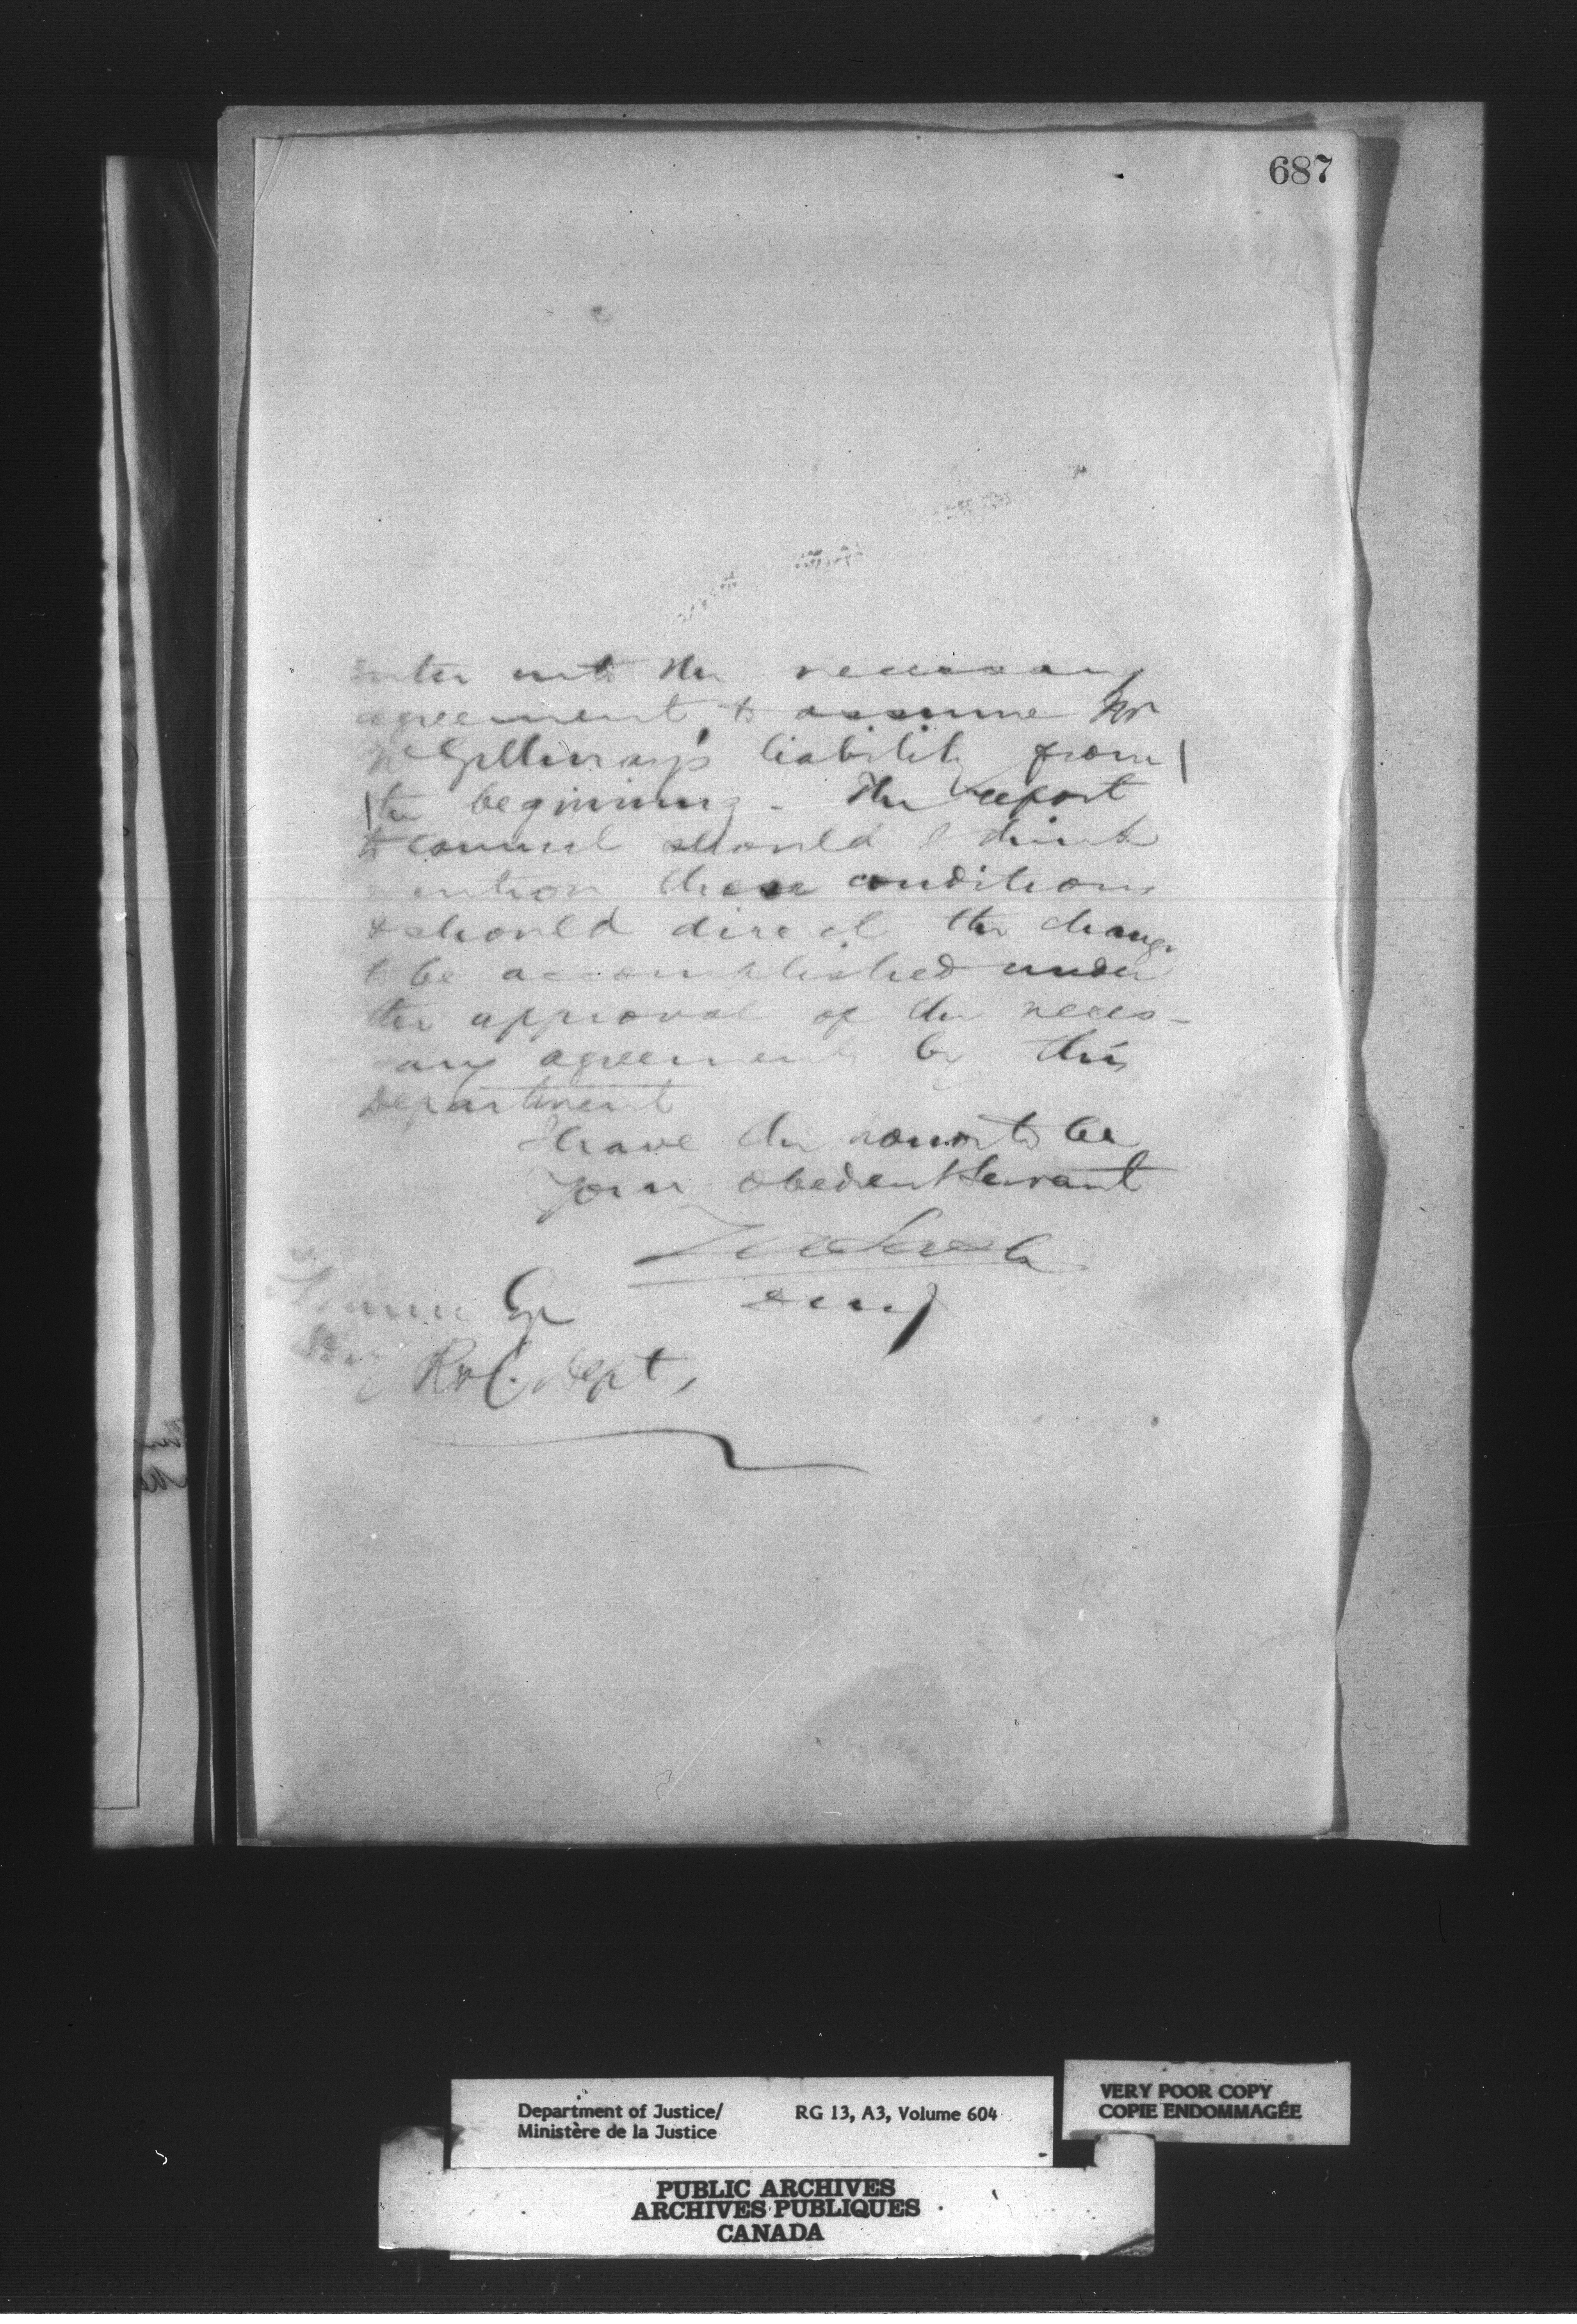 687
enter into the necessary
agreement to assume Mr
McGillivray's liability from
the beginning - The report
to council should I think
mention these conditions
& should direct the change
to be accomplished under
the approval of the neces-
sary agreements by this
Department
I have the honor to be
Your obedient Servant
ZA Lash
DMJ
Esq
R & C. Dept,
Department of Justice/
Ministère de la Justice
RG 13, A3, Volume 604
VERY POOR COPY
COPIE ENDOMMAGÉE
PUBLIC ARCHIVES
ARCHIVES PUBLIQUES
CANADA